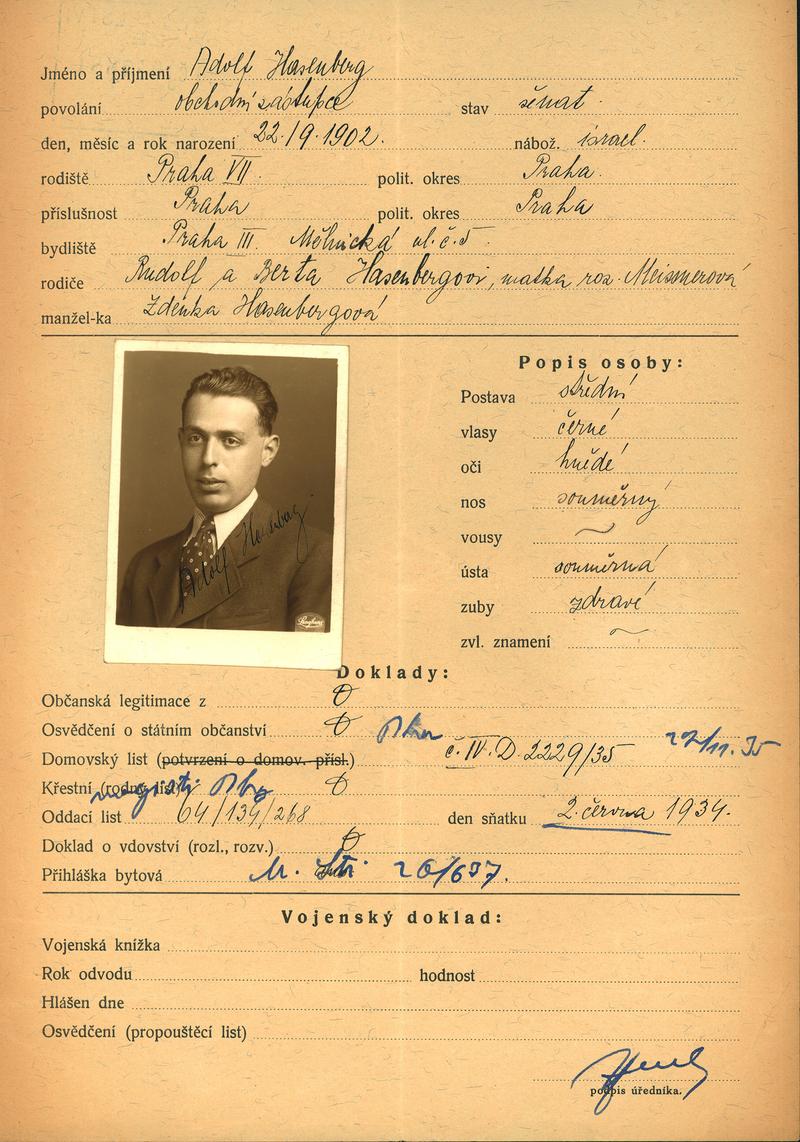 Jméno a příjmení Adolf Hasenberg
povolání obchodní zástupce stav ženat.
den, měsíc a rok narození 22./9.1902. nábož. israel.
rodiště Praha VII. polit. okres Praha.
příslušnost Praha polit. okres Praha
bydliště Praha III. Mělnická ul. č. 5.
rodiče Rudolf a Berta Hasenbergovi, matka roz. Meisnerová
manžel-ka Zdenka Hasenbergová
Popis osoby:
Postava střední
vlasy černé
oči hnědé
nos souměrný
vousy ~
ústa souměrná
zuby zdravé
zvl. znamení ~
Adolf Hasenberg
Langhans
Doklady:
Občanská legitimace z
Osvědčení o státním občanství
Domovský list (potvrzení o domov. přísl.) č. IV. D. 2229/35 27/11. 35
Křestní (rodný list)
Oddací list 64/134/268 den sňatku 2. června 1934.
Doklad o vdovství (rozl., rozv.)
Přihláška bytová 26/637.
Vojenský doklad:
Vojenská knížka
Rok odvodu hodnost
Hlášen dne
Osvědčení (propouštěcí list)
podpis úředníka.